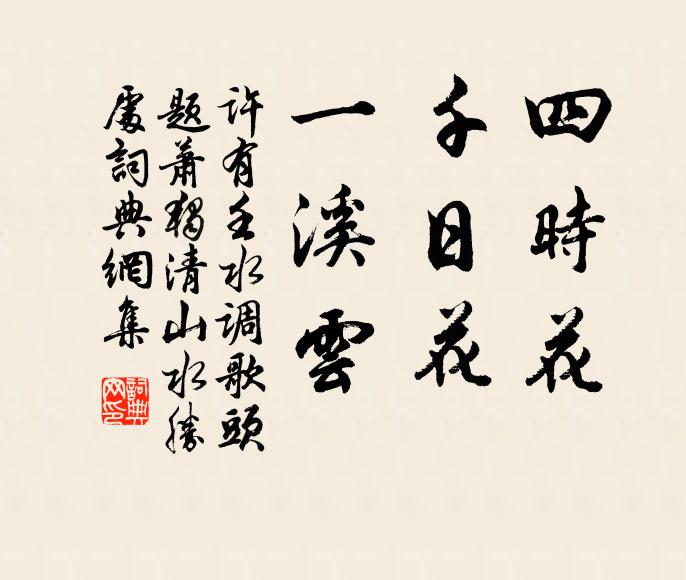 四時花
千日花
一溪雲
許有壬水調歌頭
題蕭獨清山水勝
處詞典網集
詞典网印